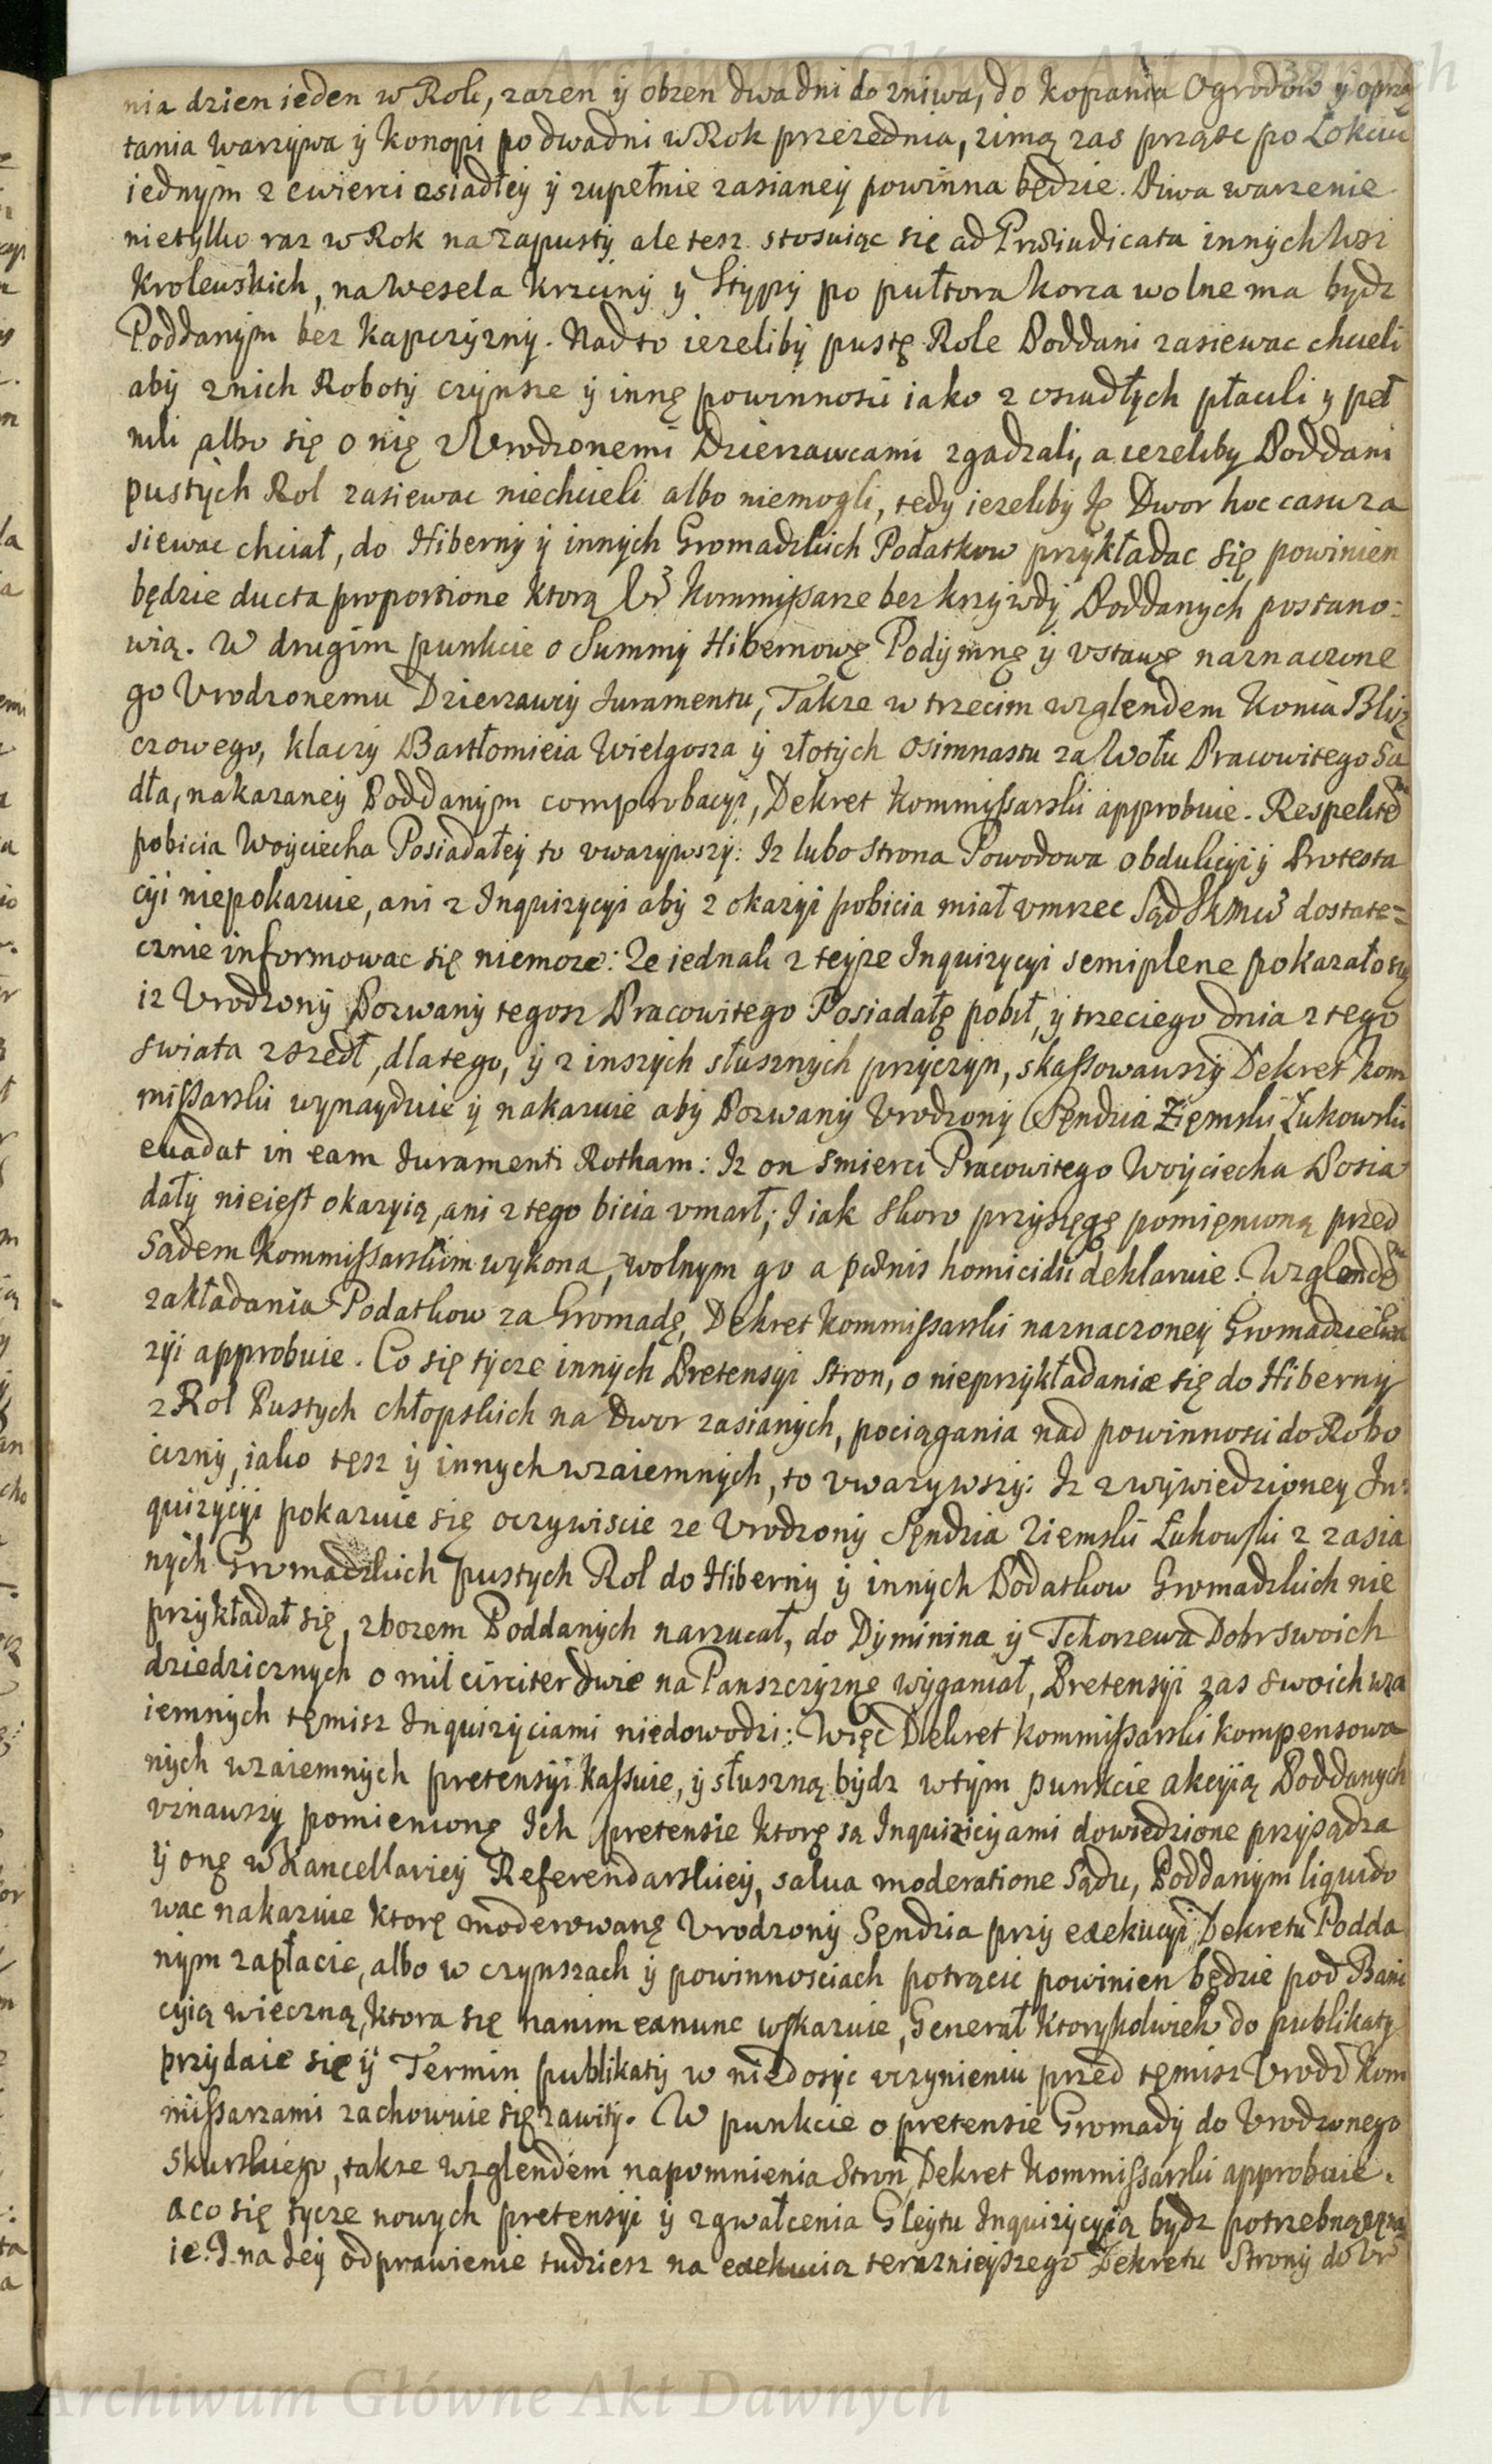 Archiwum Główne Akt Dawnych
nia dzien ieden w Roli, zazen ÿ obzen dwa dni do zniwa, do kopania Ogrodow ÿ oprzą
tania warzÿwa ÿ konopi po dwa dni w Rok przezednia, zimą zas prząsc po Łokciu
iednÿm z cwierci osiadłeÿ ÿ zupełnie zasianeÿ powinna będzie. Piwa warzenie
nietÿlko raz w Rok na Zapustÿ ale tesz stosuiąc się ad Præiudicata innÿch wsi
Krolewskich, na wesela krzcinÿ ÿ Stÿpÿ po pułtora korca wolne ma bÿdz
Poddanÿm bez kapczÿznÿ. Nad to iezelibÿ pustę Role Poddani zasiewac chcieli
abÿ z nich Robotÿ czÿnsze ÿ innę powinnosci iako z osiadłÿch płacili y peł
nili albo się o nię z Urodzonemi Dzierzawcami zgadzali, a iezeliby Poddani
pustÿch Rol zasiewac niechcieli albo niemogli, tedy iezelibÿ Ię Dwor hoc casu za
siewac chciał, do Hibernÿ ÿ innÿch Gromadzkich Podatkow przÿkładac się powinien
będzie ducta proportione ktorą Ur Kommissarze bez krzÿwdÿ Poddanych postano=
wią. W drugim punkcie o Summÿ Hibernowę Podÿmnę ÿ vstawę naznaczone
go Vrodzonemu Dzierzawcÿ Iuramentu, Takze w trzecim wzglendem Konia Blisz
czowego, klaczÿ Bartłomieia Wielgosza ÿ złotÿch osimnastu za Wołu Pracowitego Sa
dła, nakazaneÿ Poddanÿm comprobacÿi, Dekret Kommissarski approbuie. Respektem
pobicia Woÿciecha Posiadałeÿ to vwazÿwszÿ: Iz lubo strona Powodowa obdukcÿi ÿ Protesta
cÿi niepokazuie, ani z Inquizÿcÿi abÿ z okazÿi pobicia miał vmrzec Sąd dostate=
cznie informowac się niemoze: Ze iednak z teÿze Inquizÿcÿi semiplene pokazało się
iz Vrodzonÿ Pozwanÿ tegosz Pracowitego Posiadałę pobił, ÿ trzeciego dnia z tego
swiata zszedł, dlatego, ÿ z inszÿch słusznÿch przÿczÿn, skassowawszÿ Dekret Kom
missarski wynaÿduie ÿ nakazuie abÿ Pozwanÿ Vrodzonÿ Sęndzia Ziemski Łukowski
euadat in eam Iuramenti Rotham: Iz on smierci Pracowitego Woÿciecha Posia
dałÿ nieiest okazÿią, ani z tego bicia vmarł; I iak skoro przÿsięgę pomięnioną przed
Sądem Kommissarskim wykona, wolnym go a pœnis homicidii deklaruie. Wzglendem
zakładania Podatkow za Gromadę, Dekret Kommissarski naznaczoneÿ Gromadzie
zÿi approbuie. Co się tÿcze innÿch Pretensÿi Stron, o nieprzÿkładanie się do Hibernÿ
z Rol Pustych chłopskich na Dwor zasianÿch, pociągania nad powinnosci do Robo
ciznÿ, iako tęsz ÿ innÿch wzaiemnÿch, to vwazÿwszÿ: Iz z wÿwiedzioneÿ In=
quizÿcÿi pokazuie się oczÿwiscie ze Vrodzonÿ Sęndzia Ziemski Łukowski z zasia
nÿch Gromadzkich pustÿch Rol do Hibernÿ ÿ innÿch Podatkow Gromadzkich nie
przÿkładał się, zbozem Poddanych narzucał, do Dÿminina ÿ Tchorzewa Dobr swoich
dziedzicznÿch o mil circiter dwie na Panszczÿznę wÿganiał, Pretensÿi zas swoich wza
iemnÿch tęmisz Inquizÿciami niedowodzi: Więc Dekret Kommissarski kompensowa
nÿch wzaiemnÿch pretensÿi kassuie, ÿ słuszną bÿdz w tÿm punkcie akcÿią Poddanych
vznawszÿ pomienionę Ich pretensie ktorę są Inquizicÿami dowiedzione przÿsądza
ÿ onę w Kancellarieÿ Referendarskieÿ, salua moderatione Sądu, Poddanÿm liquido
wac nakazuie ktorę moderowanę Vrodzonÿ Sęndzia przÿ exekucÿi Dekretu Podda
nÿm zapłacic, albo w czÿnszach ÿ powinnosciach potrącic powinien będzie pod Bani
cÿią wieczną, ktora się nanim exnunc wskazuie, Generał ktorÿkolwiek do publikatÿ
przÿdaie się ÿ Termin publikatÿ w niedosÿc vczÿnieniu przed tęmisz Vrodz Kom
missarzami zachowuie się zawitÿ. W punkcie o pretensie Gromadÿ do Vrodzonego
Skurskiego, takze wzglendem napomnienia Stron, Dekret Kommissarski approbuie.
a co się tÿcze nowÿch pretensÿi ÿ zgwałcenia Gleÿtu Inquizÿcÿią bÿdz potrzebną
ie. I na Ieÿ odprawienie tudziesz na exekucią terazniejszego Dekretu Stronÿ do Ur
Archiwum Główne Akt Dawnych